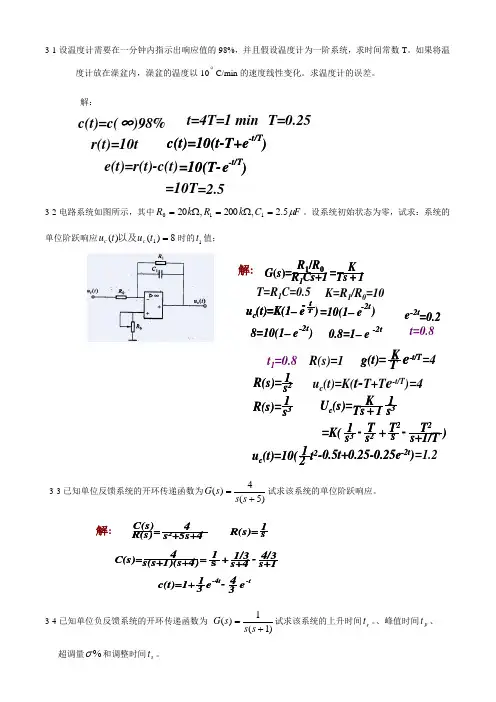 3-1设温度计需要在一分钟内指示出响应值的98%，并且假设温度计为一阶系统，求时间常数T。如果将温
度计放在澡盆内，澡盆的温度以10°C/min的速度线性变化。求温度计的误差。
解：
c(t)=c(∞)98% t=4T=1 min T=0.25
r(t)=10t c(t)=10(t-T+e^{-t/T})
e(t)=r(t)-c(t)=10(T-e^{-t/T})
=10T=2.5
3-2电路系统如图所示，其中R_0=20kΩ,R_1=200kΩ,C_1=2.5μF。设系统初始状态为零，试求：系统的
单位阶跃响应u_c(t)以及u_c(t_1)=8时的t_1值；
R_1
C_1
u_r(t)
R_0
▷∞
u_c(t)
R_0
解: G(s)=\frac{R_1/R_0}{R_1Cs+1}=\frac{K}{Ts+1}
T=R_1C=0.5 K=R_1/R_0=10
u_c(t)=K(1–e^{-t/T})=10(1–e^{-2t}) e^{-2t}=0.2
8=10(1–e^{-2t}) 0.8=1–e^{-2t} t=0.8
t_1=0.8 R(s)=1 g(t)=\frac{K}{T}e^{-t/T}=4
R(s)=\frac{1}{s^2} u_c(t)=K(t-T+Te^{-t/T})=4
R(s)=\frac{1}{s^3} U_c(s)=\frac{K}{Ts+1}\frac{1}{s^3}
=K(\frac{1}{s^3}-\frac{T}{s^2}+\frac{T^2}{s}-\frac{T^2}{s+1/T})
u_c(t)=10(\frac{1}{2}t^2-0.5t+0.25-0.25e^{-2t})=1.2
3-3已知单位反馈系统的开环传递函数为G(s)=\frac{4}{s(s+5)}试求该系统的单位阶跃响应。
解: \frac{C(s)}{R(s)}=\frac{4}{s^2+5s+4} R(s)=\frac{1}{s}
C(s)=\frac{4}{s(s+1)(s+4)}=\frac{1}{s}+\frac{1/3}{s+4}-\frac{4/3}{s+1}
c(t)=1+\frac{1}{3}e^{-4t}-\frac{4}{3}e^{-t}
3-4已知单位负反馈系统的开环传递函数为 G(s)=\frac{1}{s(s+1)}试求该系统的上升时间t_r。、峰值时间t_p、
超调量σ%和调整时间t_s。